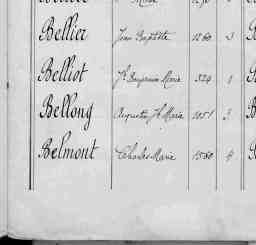 Bellier Jean Baptiste 1260 3
Belliot Jh Benjamin Marie 324 1
Bellong Augustin Jh Marie 1051 3
Belmont Charles Marie 1560 4